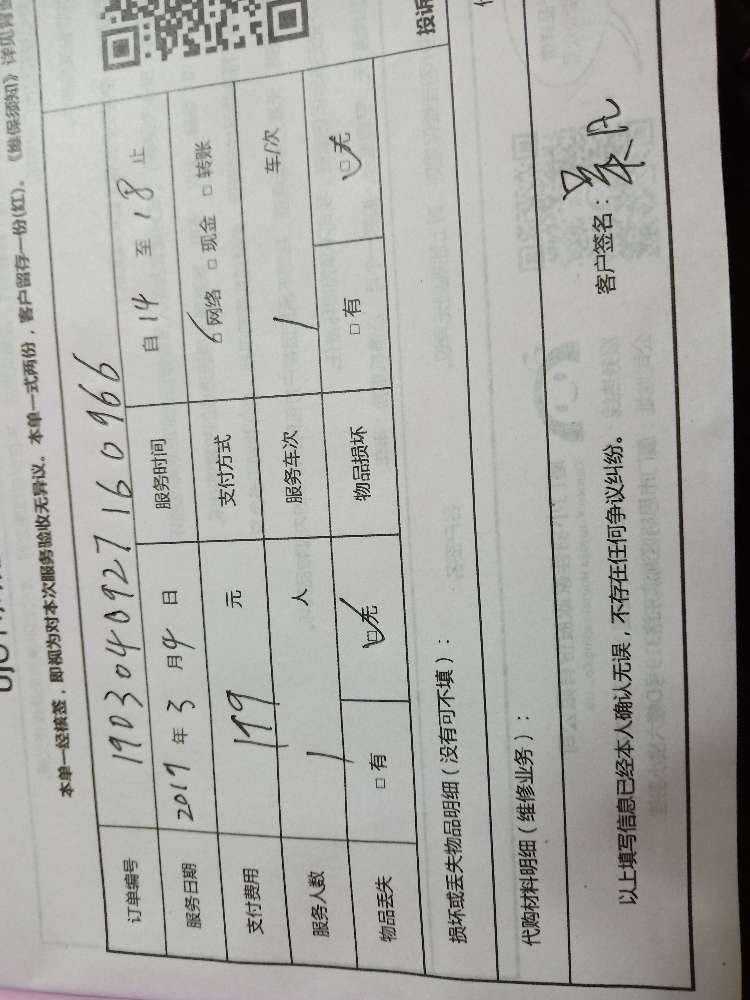 《维保须知》详见背面
本单一经核签，即视为对本次服务验收无异议。本单一式两份，客户留存一份(红)。
投诉
订单编号 1903040927160966
服务日期 2019 年 3 月 4 日 服务时间 自 14 至 18 止
支付费用 199 元 支付方式 ☑网络 □现金 □转账
服务人数 1 人 服务车次 1 车/次
物品丢失 □有 ☑无 物品损坏 □有 ☑无
损坏或丢失物品明细（没有可不填）：
代购材料明细（维修业务）：
以上填写信息已经本人确认无误，不存在任何争议纠纷。 客户签名：